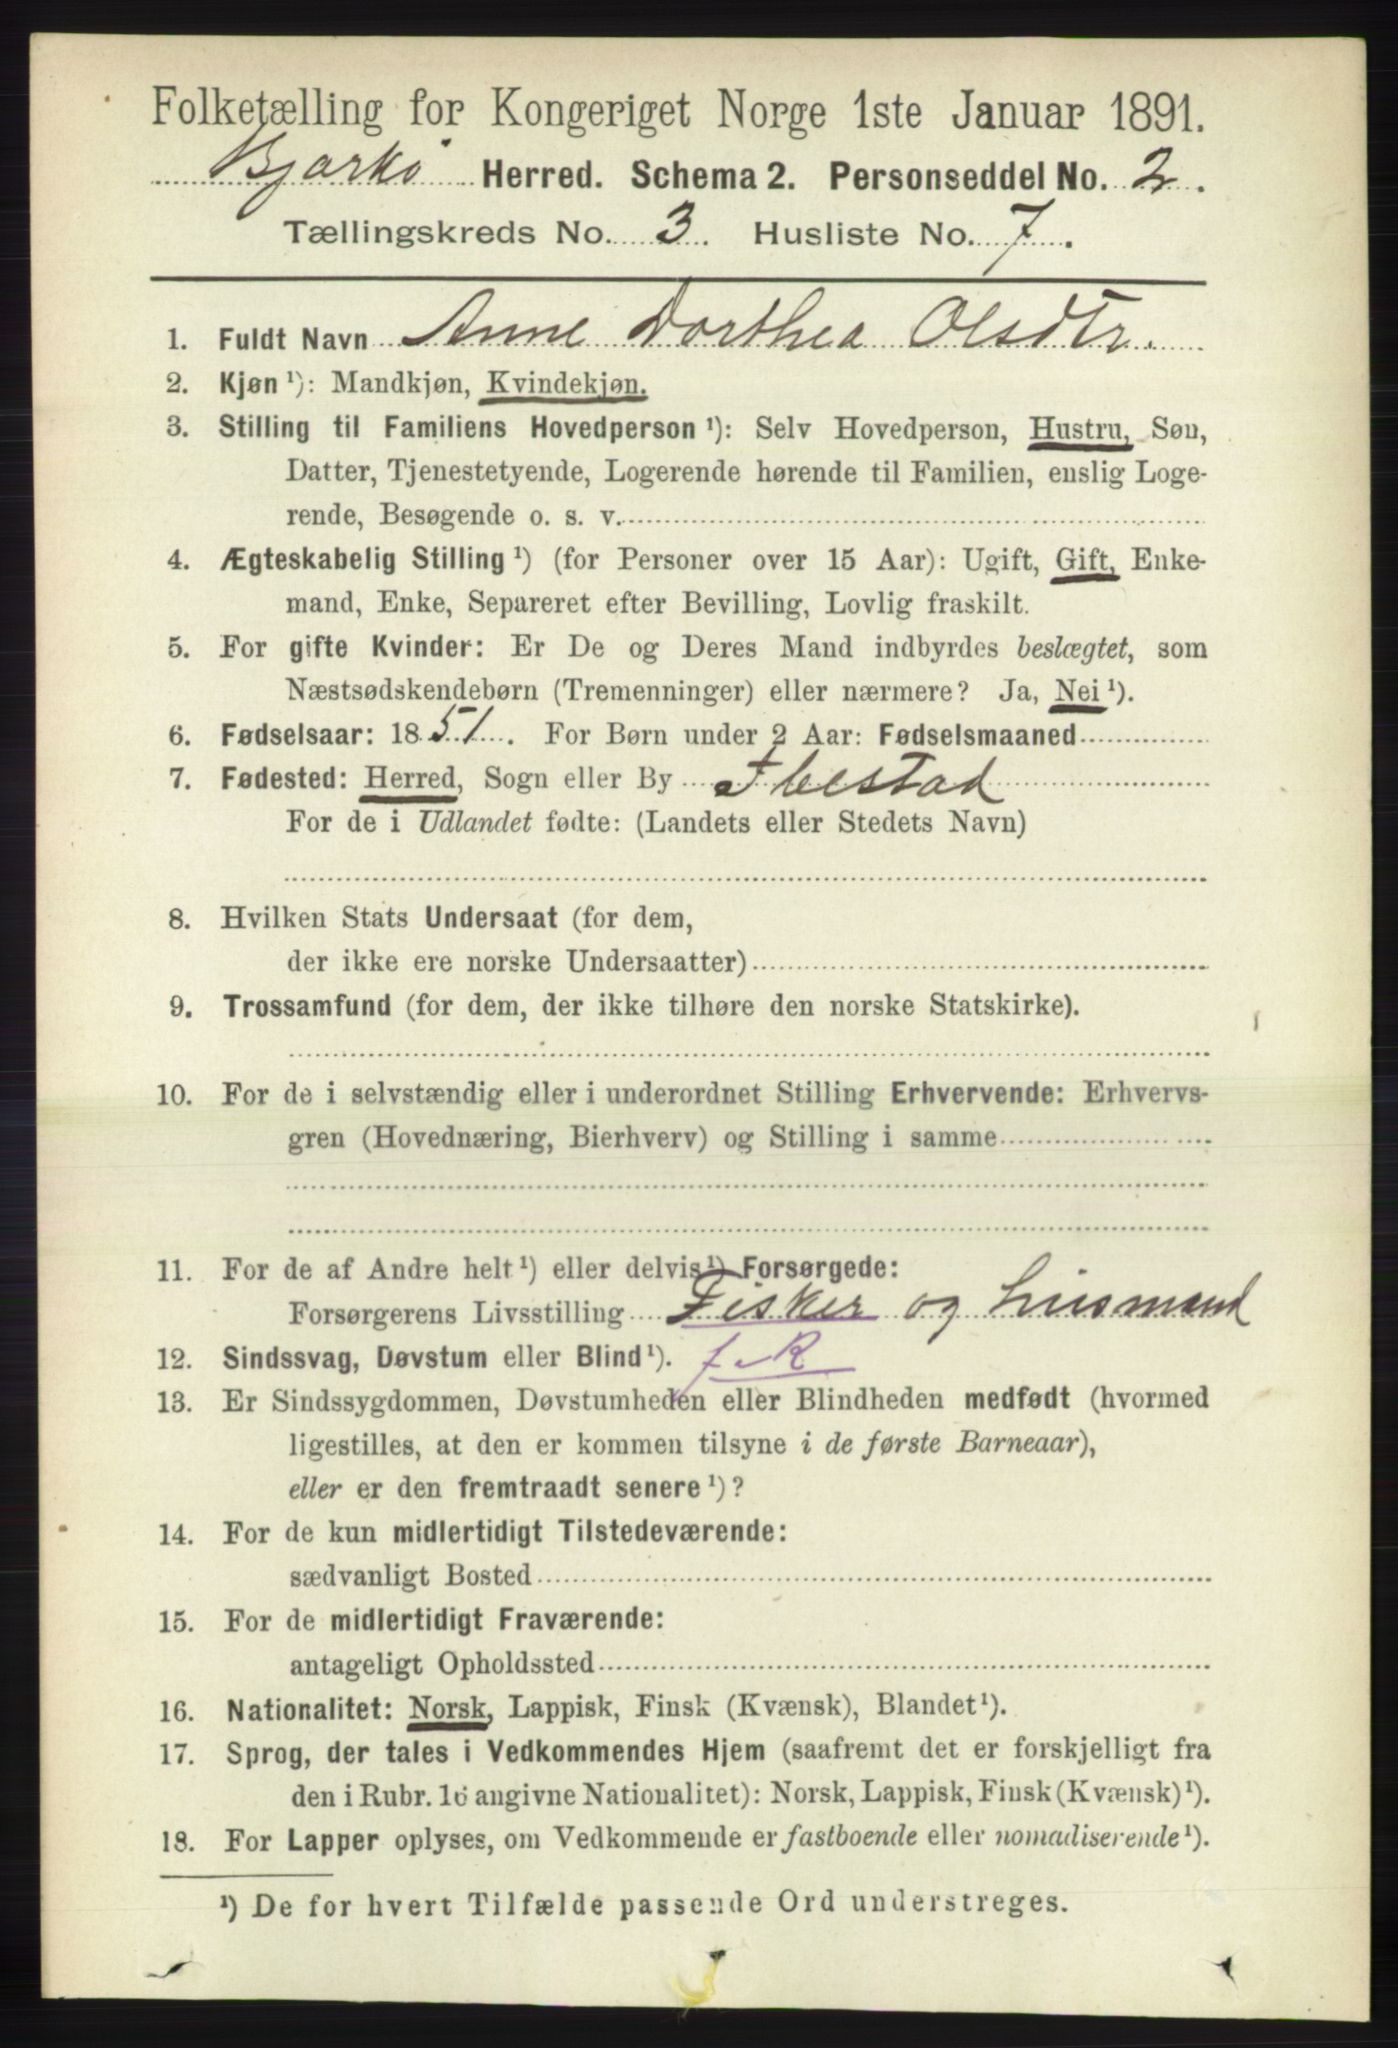 Folketælling for Kongeriget Norge 1ste Januar 1891.
Bjarkø Herred. Schema 2. Personseddel No. 2.
Tællingskreds No. 3. Husliste No. 7.
1. Fuldt Navn Anne Dorthea Olsdtr.
2. Kjøn ¹): Mandkjøn, Kvindekjøn.
3. Stilling til Familiens Hovedperson ¹): Selv Hovedperson, Hustru, Søn,
Datter, Tjenestetyende, Logerende hørende til Familien, enslig Loge-
rende, Besøgende o. s. v.
4. Ægteskabelig Stilling ¹) (for Personer over 15 Aar): Ugift, Gift, Enke-
mand, Enke, Separeret efter Bevilling, Lovlig fraskilt.
5. For gifte Kvinder: Er De og Deres Mand indbyrdes beslægtet, som
Næstsødskendebørn (Tremenninger) eller nærmere? Ja, Nei ¹).
6. Fødselsaar: 1851. For Børn under 2 Aar: Fødselsmaaned
7. Fødested: Herred, Sogn eller By Ibestad
For de i Udlandet fødte: (Landets eller Stedets Navn)
8. Hvilken Stats Undersaat (for dem,
der ikke ere norske Undersaatter)
9. Trossamfund (for dem, der ikke tilhøre den norske Statskirke).
10. For de i selvstændig eller i underordnet Stilling Erhvervende: Erhvervs-
gren (Hovednæring, Bierhverv) og Stilling i samme
11. For de af Andre helt ¹) eller delvis ¹) Forsørgede:
Forsørgerens Livsstilling Fisker og husmand
12. Sindssvag, Døvstum eller Blind ¹).
13. Er Sindssygdommen, Døvstumheden eller Blindheden medfødt (hvormed
ligestilles, at den er kommen tilsyne i de første Barneaar),
eller er den fremtraadt senere ¹)?
14. For de kun midlertidigt Tilstedeværende:
sædvanligt Bosted
15. For de midlertidigt Fraværende:
antageligt Opholdssted
16. Nationalitet: Norsk, Lappisk, Finsk (Kvænsk), Blandet ¹).
17. Sprog, der tales i Vedkommendes Hjem (saafremt det er forskjelligt fra
den i Rubr. 16 angivne Nationalitet): Norsk, Lappisk, Finsk (Kvænsk) ¹).
18. For Lapper oplyses, om Vedkommende er fastboende eller nomadiserende ¹).
¹) De for hvert Tilfælde passende Ord understreges.